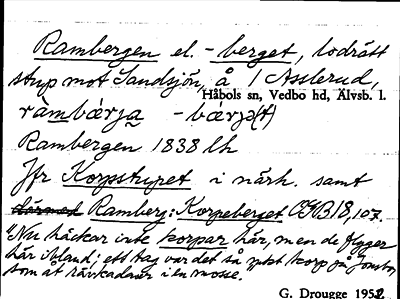 Rambergen el. -berget, lodrätt
stup mot Sandsjön, å 1 Asslerud,
Håbols sn, Vedbo hd, Älvsb. l.
ràmbǽrja -bǽrjə(t)
Rambergen 1838 lh
Jfr Korpstupet i närh. samt
Ramberg: Korpeberget OGB 18, 107.
"Nu häckar inte korpar här, men de flyger
här ibland; ett tag var det så mycket korp på
som åt rävkadaver i en mosse.
G. Drougge 1952.